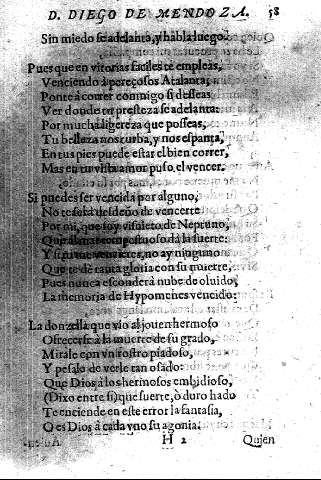 D. DIEGO DE MENDOZA. 58
Sin miedo se adelanta, y habla luego.
Pues que en vitorias faciles te empleas,
Venciendo à pereçosos Atalanta,
Ponte à correr conmigo si desseas
Ver donde tu presteza se adelanta:
Por mucha ligereza que posseas,
Tu belleza nos turba, y nos espanta,
En tus pies puede estar el bien correr,
Mas en tu vista amor puso el vencer.
Si puedes ser vencida por alguno,
No te será desdeño de vencerte
Por mi, que soy visnieto de Neptuno,
Que al mar tempestuoso dà la suerte:
Y si me vencieres, no ay ninguno
Que te dè tanta gloria con su muerte,
Pues nunca esconderà nube de oluido,
La memoria de Hypomenes vencido:
La donzella que vio al jouen hermoso
Ofrecerse à la muerte de su grado,
Mirale con vn rostro piadoso,
Y pesale de verle tan osado:
Que Dios à los hermosos embidioso,
(Dixo entre si) que suerte, ò duro hado
Te enciende en este error la fantasia,
O es Dios à cada vno su agonia:
H 2 Quien